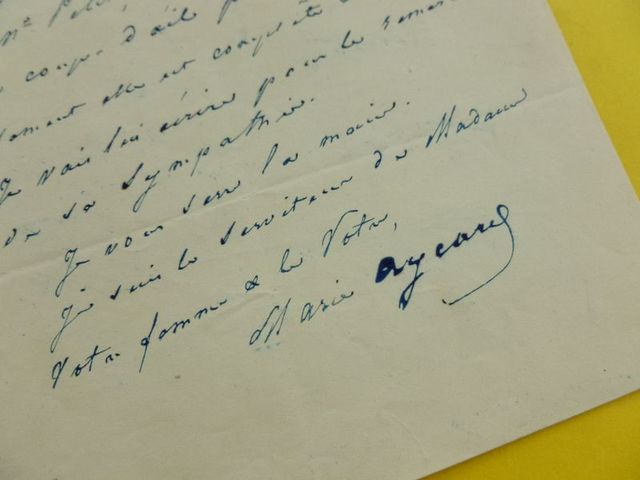 coups d'aile
elle est complète
Je vais lui écrire pour le remer
de sa sympathie.
Je vous serre la main.
Je suis le serviteur de Madame
Votre femme & le Votre,
Marie Aycard